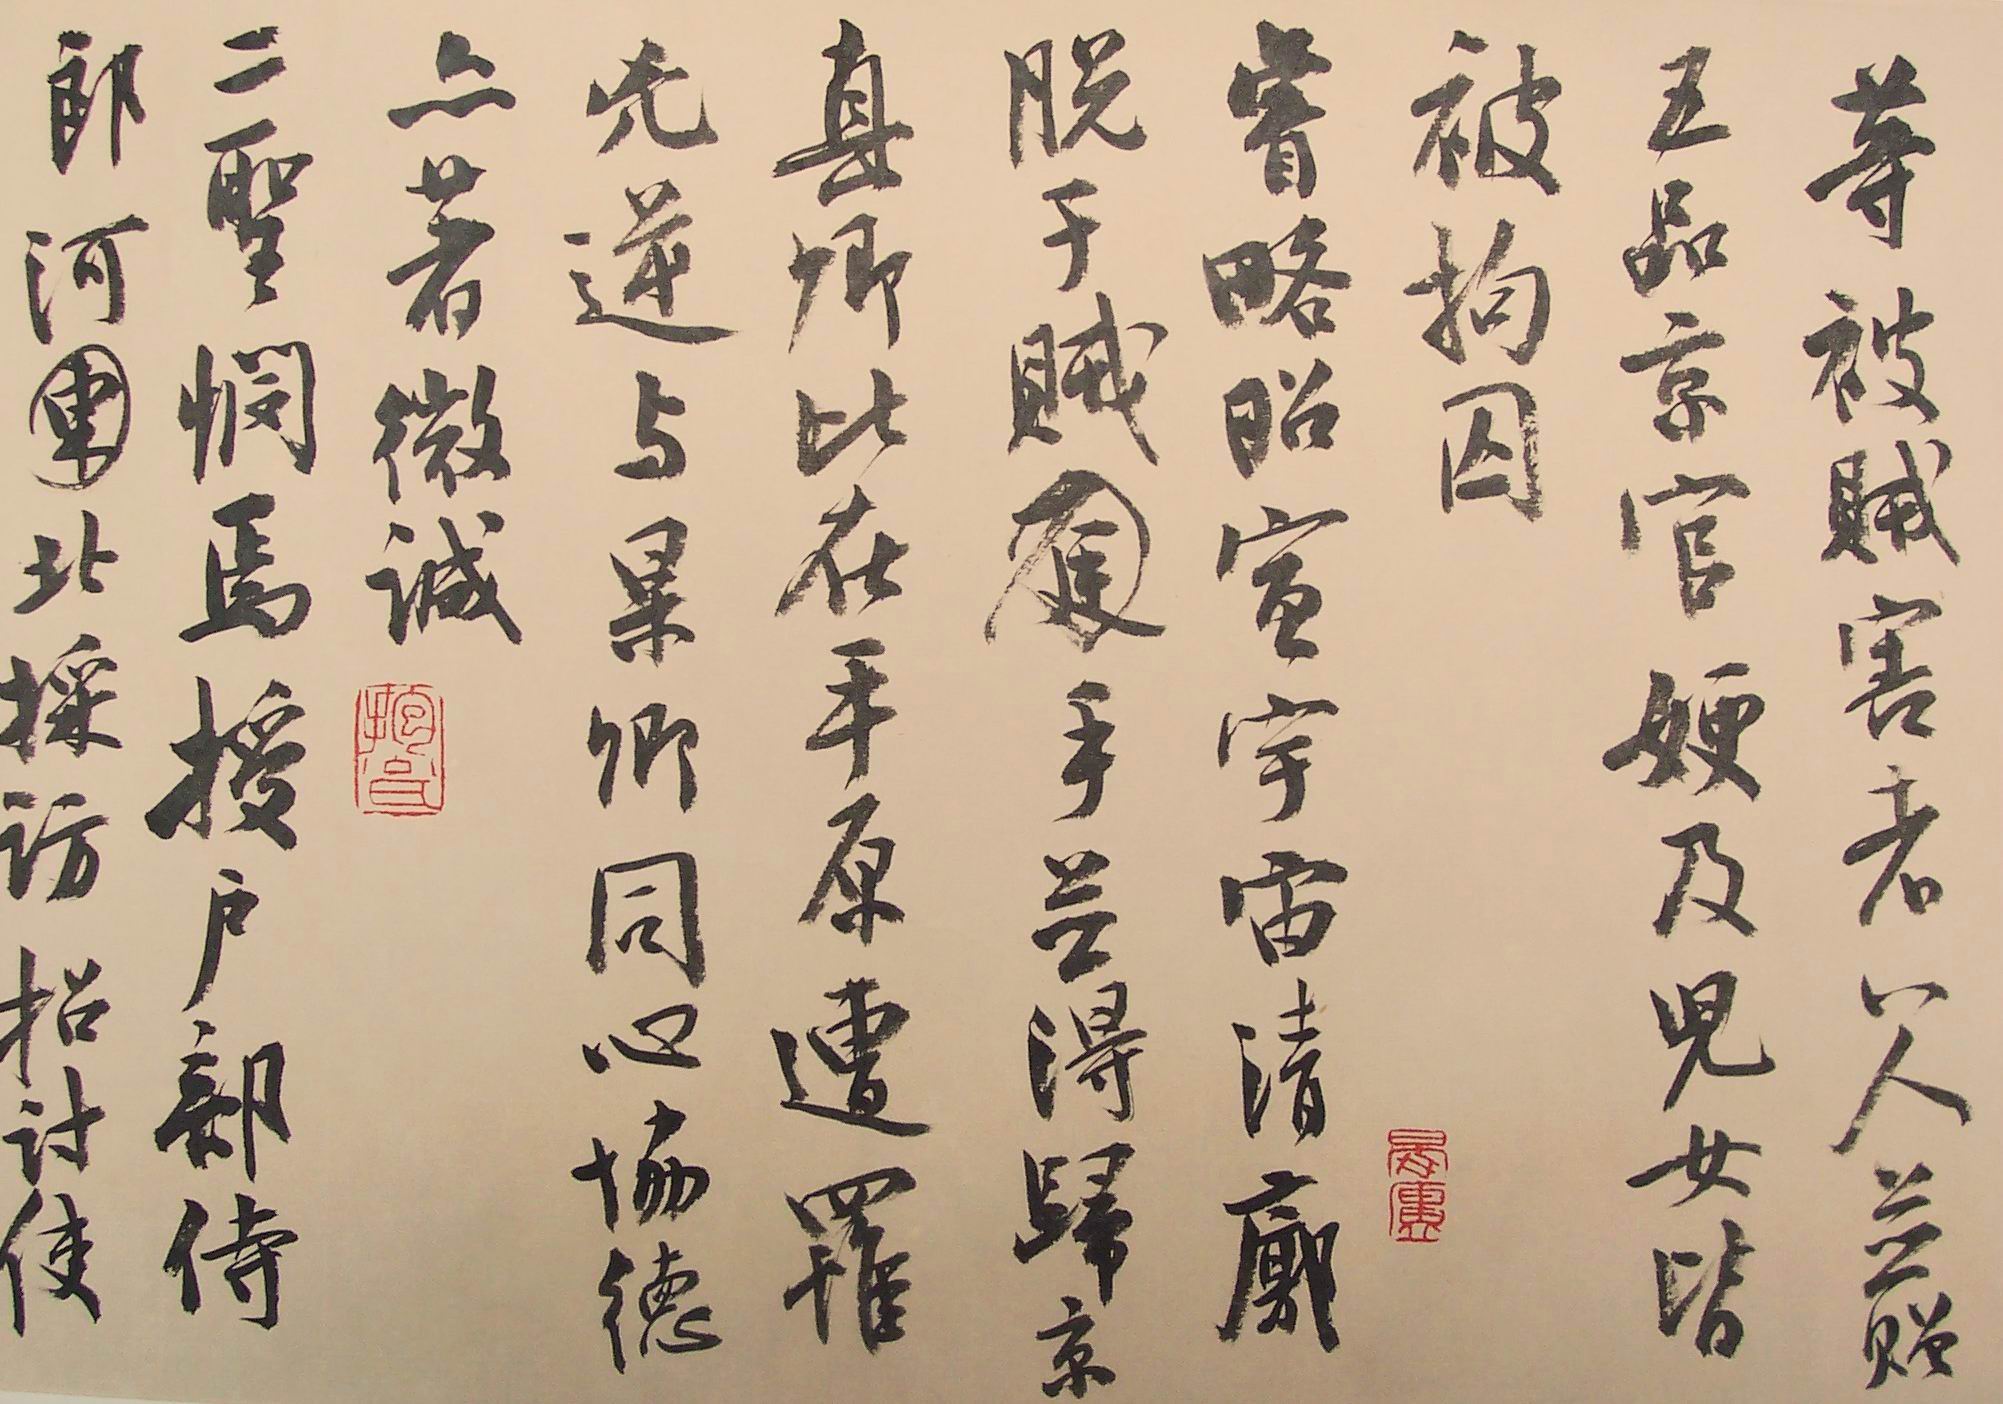 等被賊害者八人並贈
五品京官嫂及兒女皆
被拘囚
睿略昭宣宇宙清廓
脱于賊手並得歸京
真卿比在平原遭罹
凶逆与杲卿同心協德
亦著微誠
二聖憫焉授戶部侍
郎河東北採訪招討使